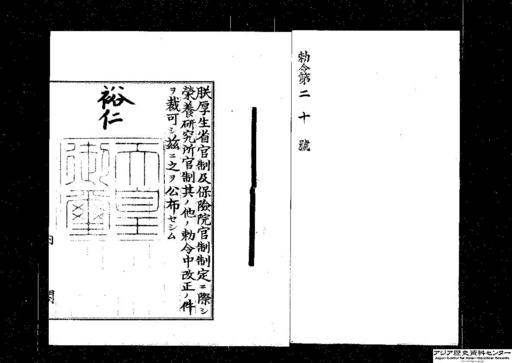 勅令第二十號
朕厚生省官制及保險院官制制定ニ際シ
榮養研究所官制其ノ他ノ勅令中改正ノ件
ヲ裁可シ茲ニ之ヲ公布セシム
裕仁
天皇
御璽
内閣
アジア歴史資料センター
Japan Center for Asian Historical Records